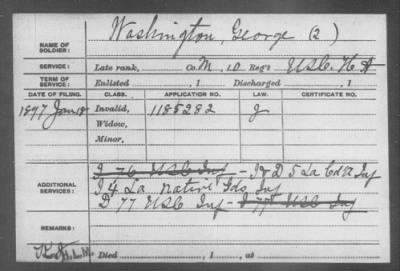 NAME OF SOLDIER: Washington, George (2)
SERVICE: Late rank, Co. M, 10 Reg't U.S.C. H. A
TERM OF SERVICE: Enlisted , 1 Discharged , 1
DATE OF FILING. CLASS. APPLICATION NO. LAW. CERTIFICATE NO.
1897 Jan 18 Invalid, 1185282 J
Widow,
Minor,
ADDITIONAL SERVICES: I 76 USC Inf - I & D 5 La Cd Inf
I 4 La Native Gds Inf
D 77 USC Inf - I 77 USC Inf
REMARKS:
Died , 1 , at